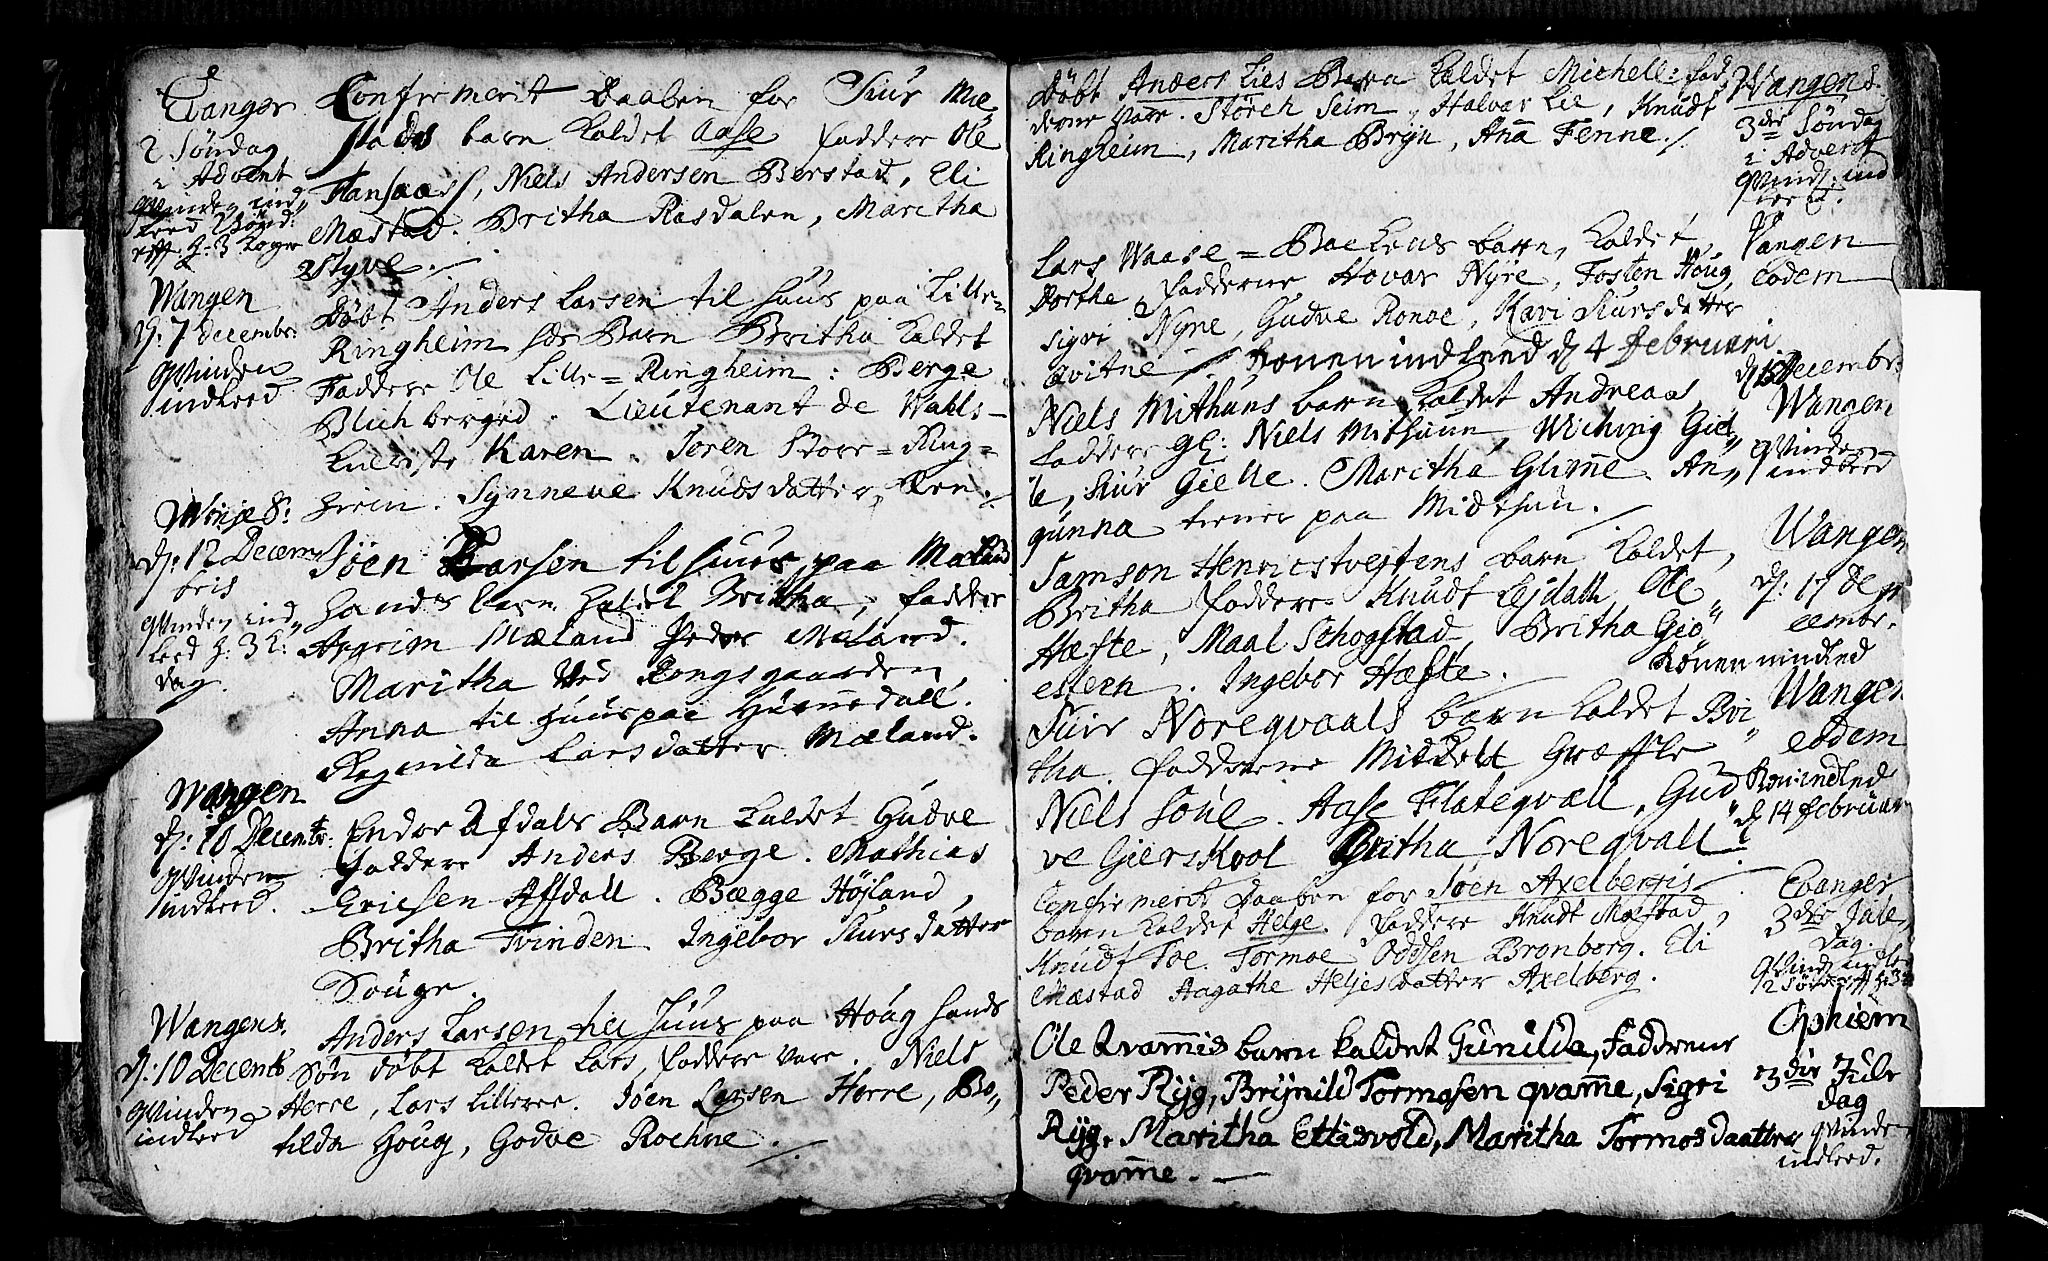 Evanger
2 Søndag
i Advent
Qvinden ind,,
leed
Confermerit Daaben for Siur Mæ
stads barn kaldet Aase faddere Ole
Fansaas, Niels Andersen Berstad, Eli
Mæstad. Britha Rasdalen, Maritha
Styve.
Wangen
d: 7 Decembr:
Qvinden
indleed
Døbt Anders Larsen til huus paa Lille-
Ringheim Barn Britha kaldet
Faddere Ole Lille=Ringheim: Berge
Blichberged. Lieutenant de Wahls-
Karen. Soren Store=Ring=
heim. Synneve Knudsdatter
Winje S:
d: 12 Decem
bris
Qvinden ind,,
leed
dag.
Joen Larsen til huus paa Mæland
hands barn kaldet Britha, fadder
Argrim Mæland Peder Mæland.
Maritha Ved Kongsgaarden,
Anna til huus paa
Ragnilda Larsdatter Mæland.
Wangen
d: 10 Decembr:
Qvinden
indleed.
Endre Afdals Barn kaldet Gudve
faddere Anders Berge. Mathias
Ericsen Affdall. Bægge Højland,
Britha Tvinden. Ingebor Siursdatter
Wangens.
d: 10 Decemb
Qvinden
indleed
Anders Larsen til huus paa Houg hands
Søn døbt kaldet Lars, faddere vare. Niels
Herre, Lars Lilleree. Joen Larsen Herre, Bo,,
tilda Houg, Godve Rochne.
Døbt Anders Lies Barn kaldet Michell: fad
derne vare. Størch Seim, Halvar Lie, Knudt
Ringheim, Maritha Bryn, Ana Fenne.
Wangens.
3die Søndag
i Advent
Qvind: ind
leed.
Lars Waase=Backens barn, kaldet,
Dorthe. fadderne Hovar Nyre, Tosten Houg,
Sigri Nyre, Gudve Ronve, Kari Siursdatter
qvitne. Konen indleed d 4 februari.
Vangen
eodem
Niels Mithuns barn kaldet Andreas,
faddere gl: Niels Mithuun, Wiching Giel,,
le, Siur Gielle. Maritha Glimme. An,,
gunna tiener paa Midthun.
d 15 Decembr
Wangen
Qvinden
indleed
Samson Henricstvejtens barn kaldet,
Britha faddere Knudt Lejdall, Ole
Hæfte, Maal Schogstad, Britha Gio,,
estein. Ingebor Hæfte. Konen indled
Wangen
d: 17 de
cembr.
Siur Noreqvaals barn kaldet Bri,,
tha. fadderne Mickell Græffle
Niels Soúe. Aase Flateqvall, Gud,,
ve Gierskvol Britha Noreqvall.
Wangen
eodem
Kon: indled
d 14 februar
Confermerit Daaben for Joen Axelbergis
barn kaldet Helge. Faddere Knudt Mæstad,
Knudt Toe. Tormoe Odesen Bronborg. Eli
Mæstad Aagathe Heljesdatter Axelberg.
Evanger
3die Jule,,
dag.
Ole Qvammis barn kaldet Gunilda, Faddrene
Peder Ryg, Brynild Tormosen qvamme, Sigri
Ryg. Maritha Ettisvold, Maritha Tormosdaatter
qvamme.
Ophiem
3die Jule
dag
Qvinden
indleed.